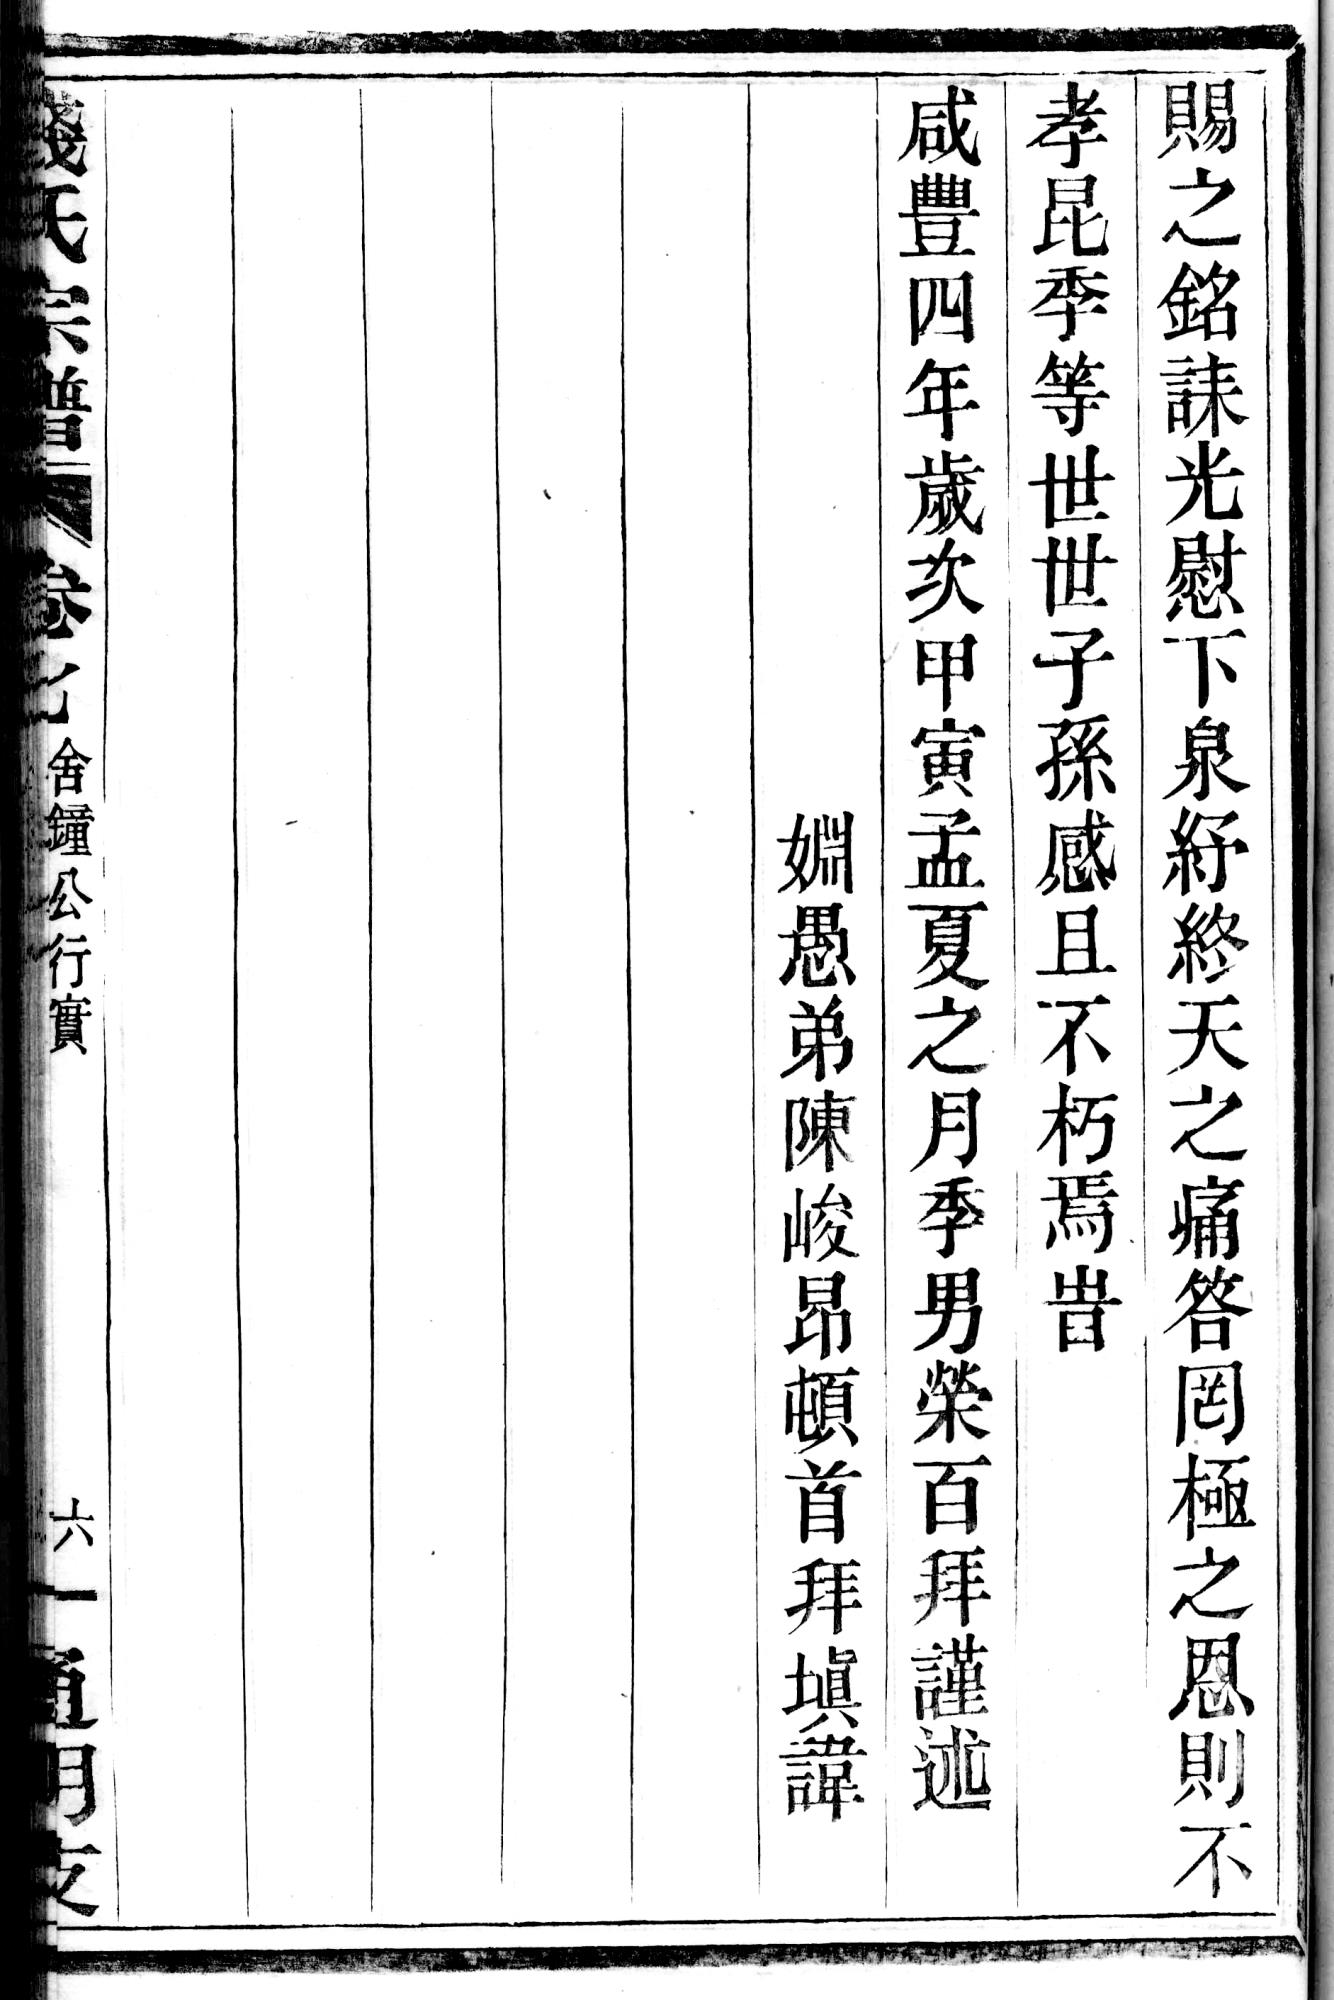 賜之銘誄光慰下泉紓終天之痛答罔極之恩則不
孝昆季等世世子孫感且不朽焉旹
咸豐四年歲次甲寅孟夏之月季男榮百拜謹述
姻愚弟陳峻昂頓首拜塡諱
錢氏宗譜 卷之 舍鐘公行實 六 通明支